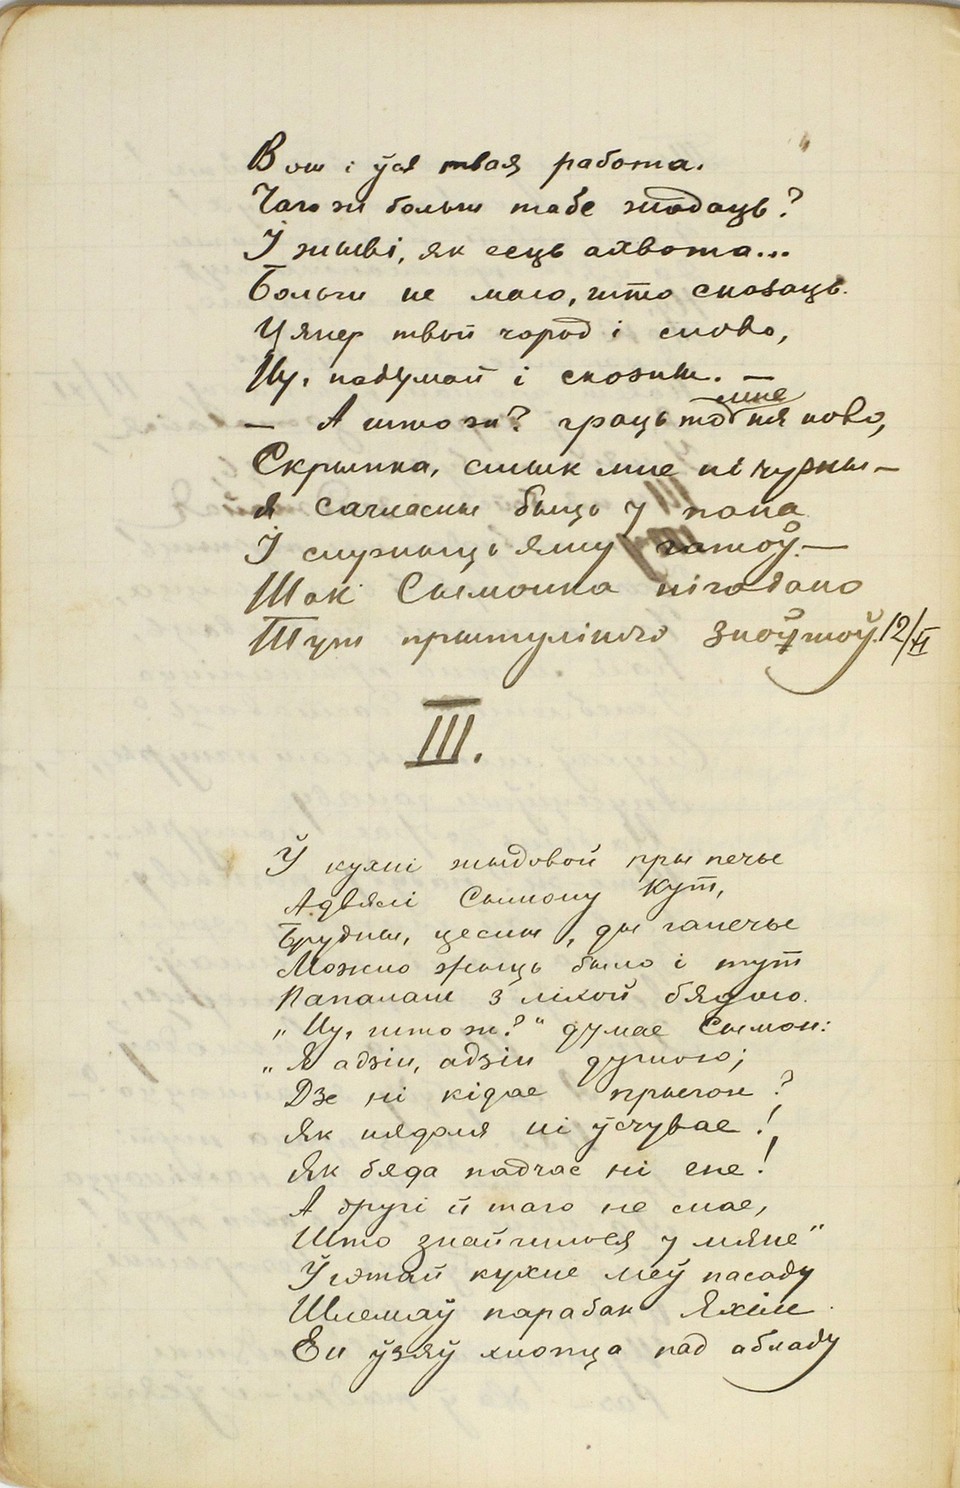 Вот і ўся твая работа.
Чаго ж больш табе жадаць?
І жыві, як есць ахвота...
Больш не маю, што сказаць.
Цяпер твой чарод і слова,
Ну, падумай і скажыш. —
— А што ж? граць то мне ня нова,
Скрыпка, смык мне ні чужы —
Я сагласны быць у пана
І служыць яму гатоў. —
Так Сымонка нігадана
Тут прытулішчо зноў 12/VI
III.
Ў кухні жыдовой пры печы
Адвялі Сымону кут,
Брудны, цесны, ды запечье
Можно жыць было і тут
Папалам з ліхой бядою.
„Ну, што ж?" думае Сымон:
„Я адзін, адзін душою;
Дзе ні кідае прыгон?
Як нядоля ні ўсчувае!
Як бяда падчас ні гне!
А другі й таго не мае,
Што знайшлося у мяне"
Ў гэтай кухне меў пасаду
Шлемаў парабак Яхім
Ен ўзяў хлопца пад абладу